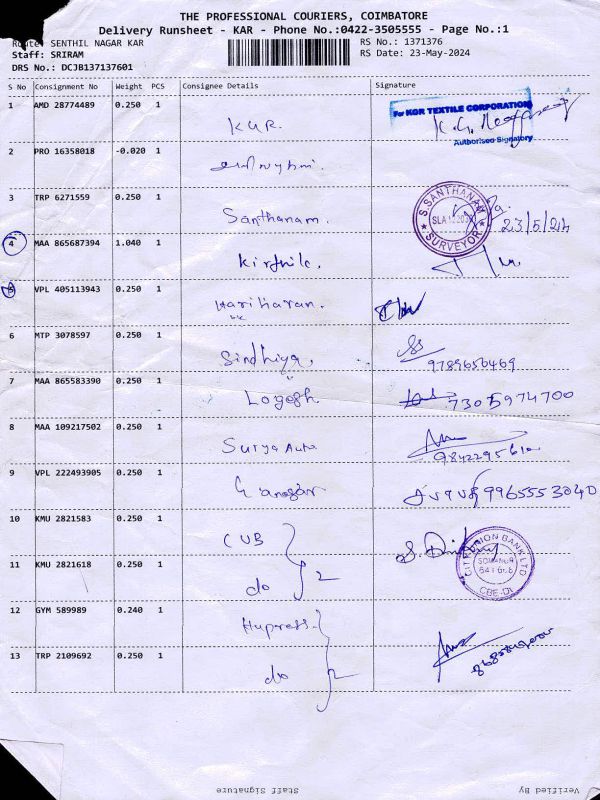 THE PROFESSIONAL COURIERS, COIMBATORE
Delivery Runsheet - KAR - Phone No.:0422-3505555 - Page No.:1
Route: SENTHIL NAGAR KAR RS No.: 1371376
Staff: SRIRAM RS Date: 23-May-2024
DRS No.: DCJB137137601
S No Consignment No Weight PCS Consignee Details Signature
1 AMD 28774489 0.250 1 KGR. For KGR TEXTILE CORPORATION
Authorised Signatory
2 PRO 16358018 -0.020 1
3 TRP 6271559 0.250 1 Santhanam. S.SANTHANAM SURVEYOR 23/5/24
4 MAA 865687394 1.040 1 Kirthik.
5 VPL 405113943 0.250 1 Hariharan.
6 MTP 3078597 0.250 1 Sindhiya, 9789650469
7 MAA 865583390 0.250 1 Logesh. 7305974700
8 MAA 109217502 0.250 1 Surya Auto
9 VPL 222493905 0.250 1 9965553040
10 KMU 2821583 0.250 1 CUB CITY UNION BANK LTD
SOMANUR
11 KMU 2821618 0.250 1 do 2
12 GYM 589989 0.240 1
13 TRP 2109692 0.250 1 do 2
Staff Signature Verified By